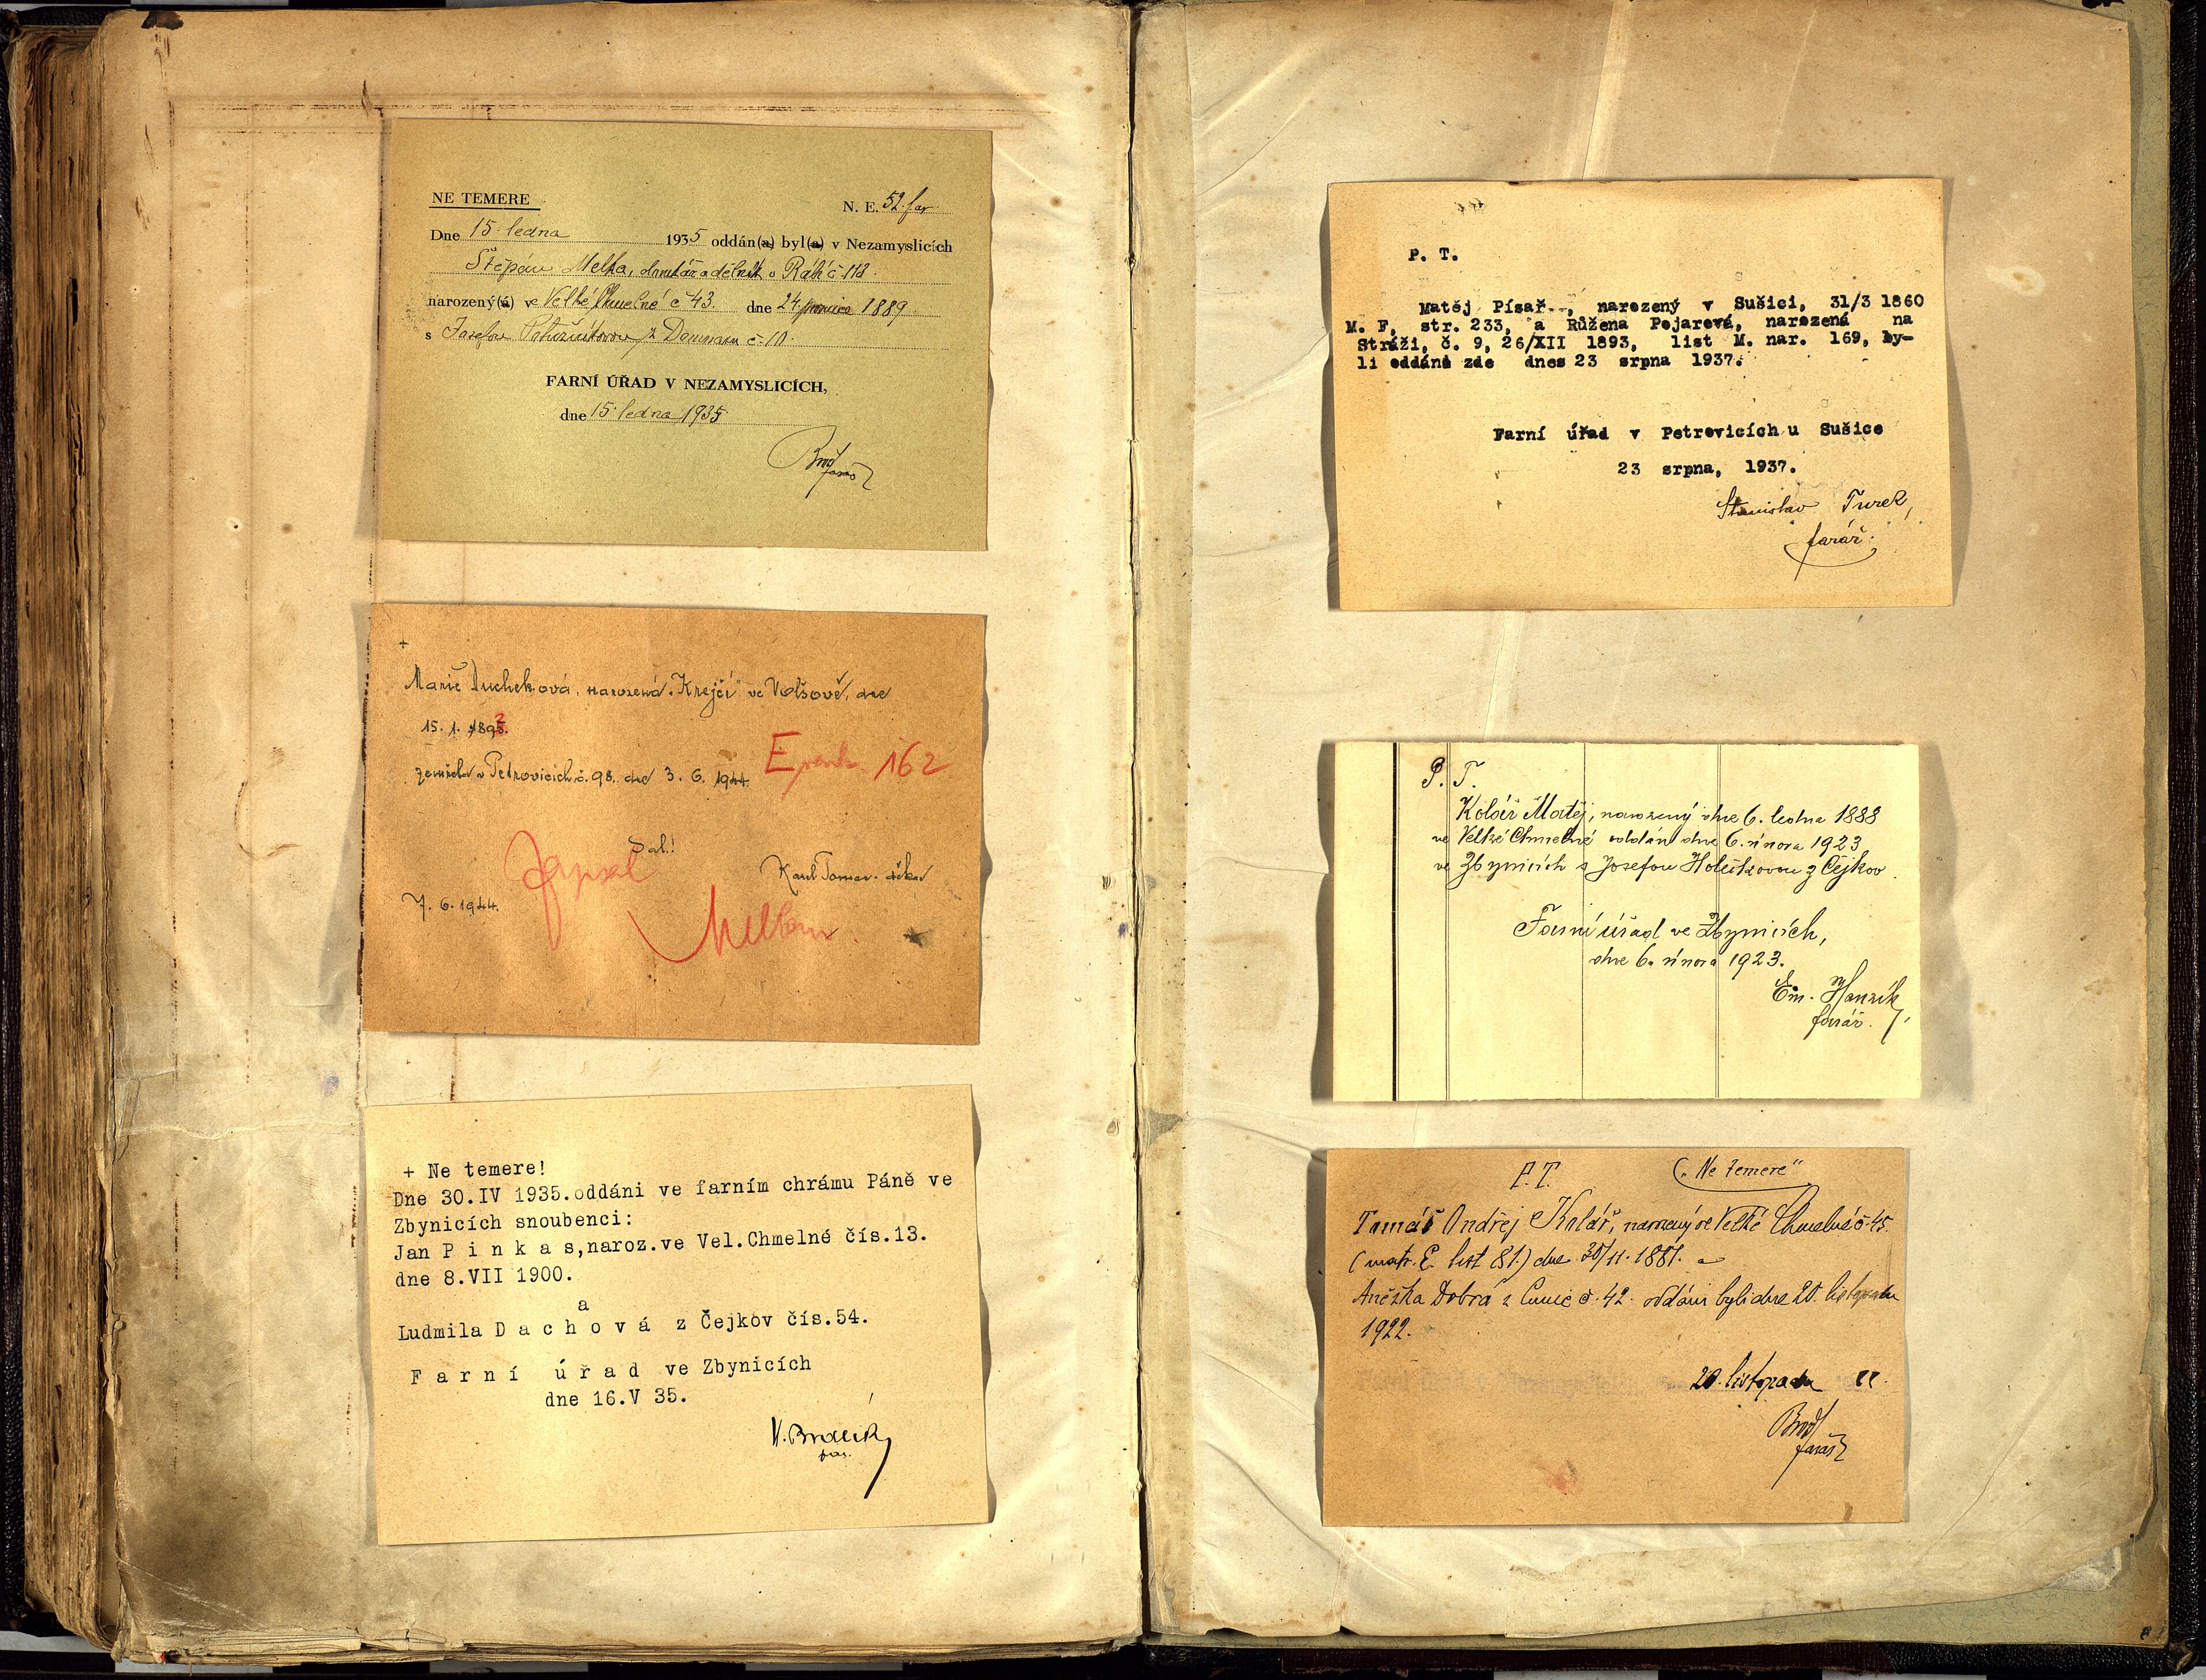 NE TEMERE
N. E. 52. far
Dne 15. ledna 1935 oddán(a) byl(a) v Nezamyslicích
Štěpán Melka, domkář a dělník v Rábí č. 118.
narozený(á) ve Velké Chmelné č 43. dne 24. prosince 1889
s Josefou z Damnasu č. 10.
FARNÍ ÚŘAD V NEZAMYSLICÍCH,
dne 15. ledna 1935
farář
+
Marie Duchková, narozená „Krejčí" ve Volšově, dne
15. 1. 1892.
zemřela v Petrovicích č. 98. dne 3. 6. 1944.
E pank. 162
Dal!
Zapsal
Karel děkan
7. 6. 1944.
+ Ne temere!
Dne 30.IV 1935.oddáni ve farním chrámu Páně ve
Zbynicích snoubenci:
Jan P i n k a s,naroz.ve Vel.Chmelné čís.13.
dne 8.VII 1900.
a
Ludmila D a c h o v á z Čejkov čís.54.
F a r n í ú ř a d ve Zbynicích
dne 16.V 35.
far.
P. T.
Matěj Písař--, narozený v Sušici, 31/3 1860
M. F, str. 233, a Růžena Pojarová, narozená na
Stráži, č. 9, 26/XII 1893, list M. nar. 169, by-
li oddáni zde dnes 23 srpna 1937.
Farní úřad v Petrovicích u Sušice
23 srpna, 1937.
Stanislav Turek,
farář.
P. T.
Kolář Matěj, narozený dne 6. ledna 1888
ve Velké Chmelné oddán dne 6. února 1923
ve Zbynicích s Josefou Holečkovou z Čejkov.
Farní úřad ve Zbynicích,
dne 6. února 1923.
Em. Hanzík
farář.
P. T.
(„Ne temere"
Tomáš Ondřej Kolář, narozený ve Velké Chmelné č. 45.
(matr. E. list 81.) dne 30/11. 1881. a
Anežka Dobrá z č. 42. oddáni byli dne 20. listopadu
1922.
20. listopadu 22.
farář